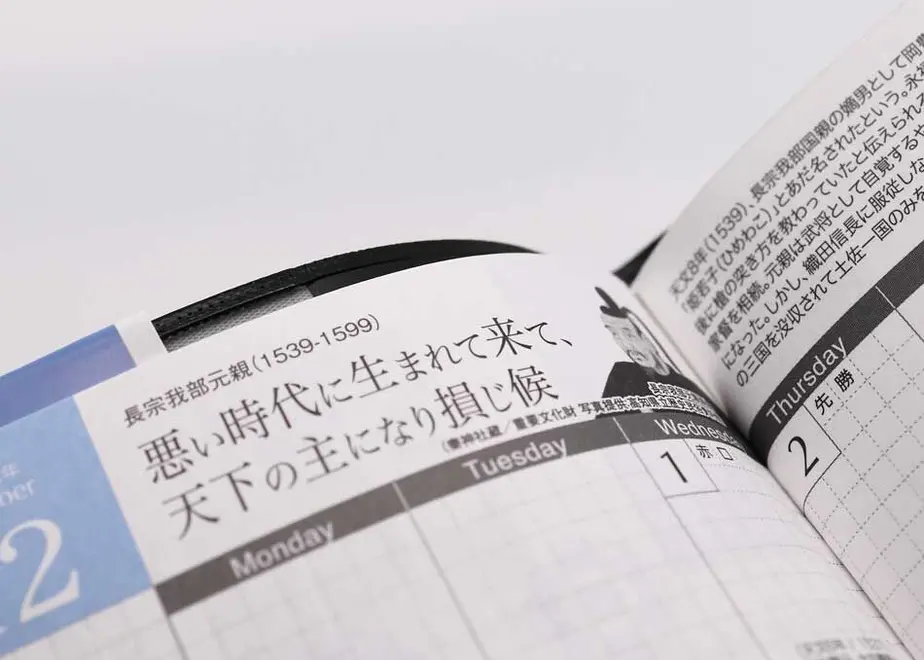 長宗我部元親(1539-1599)
悪い時代に生まれて来て、
天下の主になり損じ候
重要文化財 写真提供:高知県立歴史
年
ber
2
Monday
Tuesday
Wednesd
1
赤口
天文8年(1539)、長宗我部国親の嫡男として岡豊
姫若子(ひめわこ)」とあだ名されたという。永禄
後に槍の突き方を教わっていたと伝えられる
家督を相続。元親は武将として自覚するや
になった。しかし、織田信長に服従しな
の三国を没収されて土佐一国のみを
Thursday
2
先勝